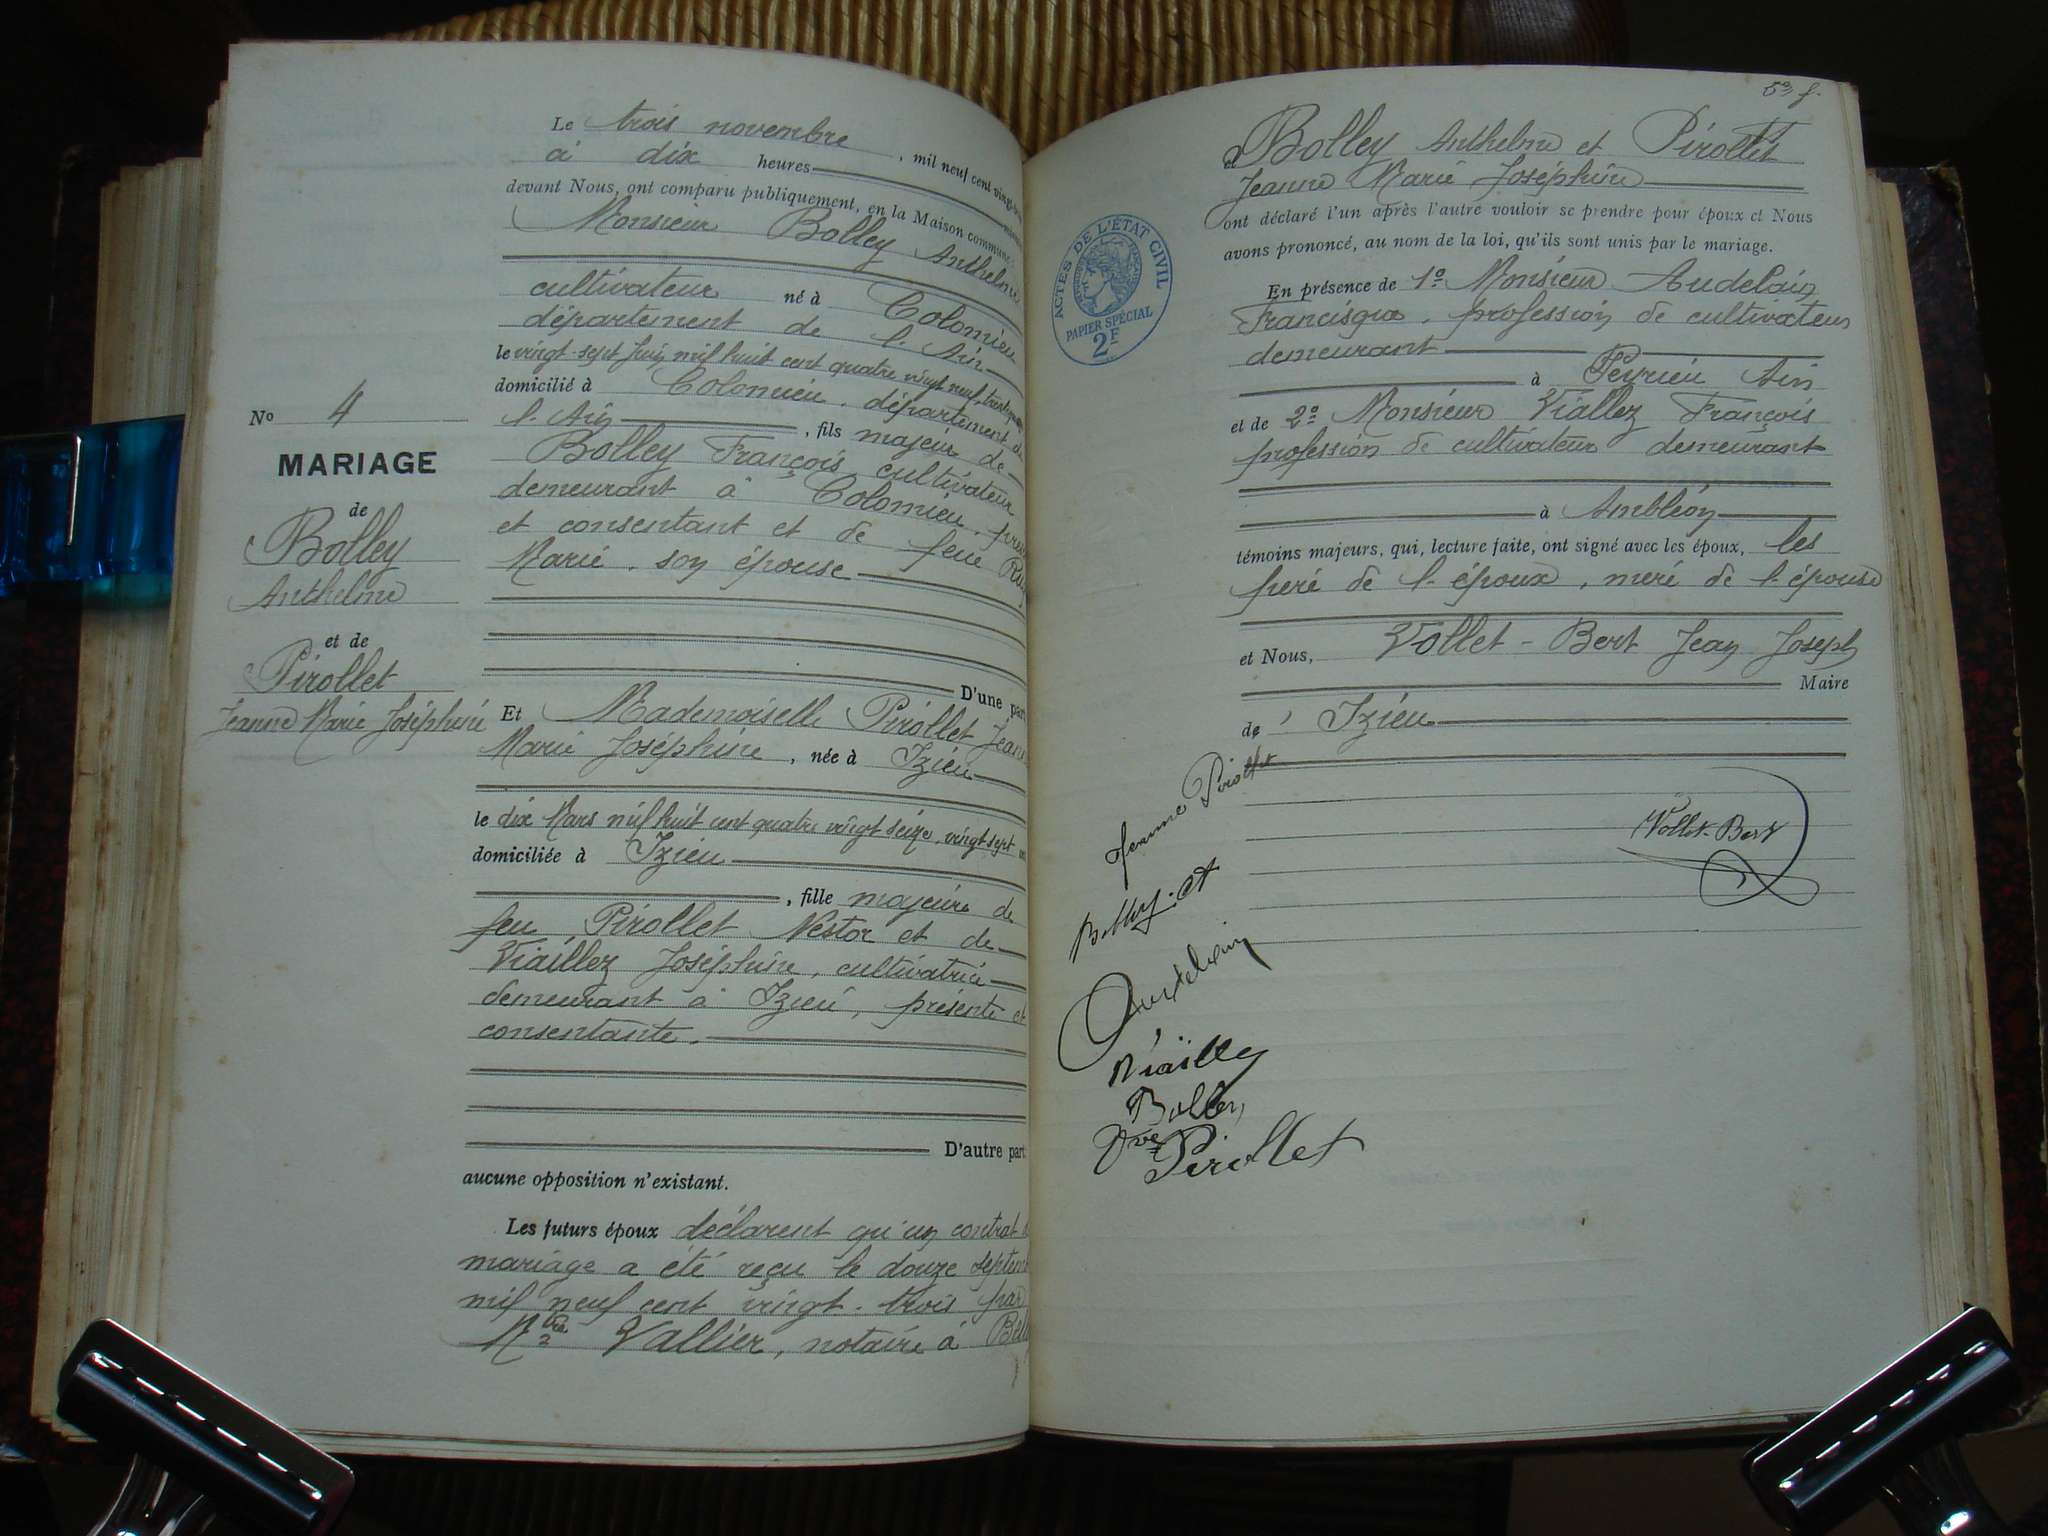 Le trois novembre, mil neuf cent vingt
à dix heures
devant Nous, ont comparu publiquement, en la Maison commune
Monsieur Bolley Anthelme
cultivateur né à Colomieu
département de l'Ain
le vingt-sept juin mil huit cent quatre vingt neuf, trente
domicilié à Colomieu, département de
l'Ain, fils majeur de
Bolley François, cultivateur
demeurant à Colomieu,
et consentant et de feue
Marie, son épouse
D'une part
Nº 4
MARIAGE
de
Bolley
Anthelme
et de
Pirollet
Jeanne Marie Joséphine
Et Mademoiselle Pirollet Jeanne
Marie Joséphine, née à Izieu
le dix Mars mil huit cent quatre vingt seize, vingt sept
domiciliée à Izieu
, fille majeure de
feu Pirollet Nestor et de
Viaillez Joséphine, cultivatrice
demeurant à Izieu, présente et
consentante.
D'autre part
aucune opposition n'existant.
Les futurs époux déclarent qu'un contrat de
mariage a été reçu le douze septem
mil neuf cent vingt-trois par
Mtre Vallier, notaire à
53 f.
et Bolley Anthelme et Pirollet
Jeanne Marie Joséphine
ont déclaré l'un après l'autre vouloir se prendre pour époux et Nous
avons prononcé, au nom de la loi, qu'ils sont unis par le mariage.
ACTES DE L'ÉTAT CIVIL
PAPIER SPÉCIAL
2F
En présence de 1º Monsieur Audelain
Francisque, profession de cultivateur
demeurant
à Peyrieu Ain
et de 2º Monsieur Viallez François
profession de cultivateur demeurant
à Ambléon
témoins majeurs, qui, lecture faite, ont signé avec les époux, les
père de l'époux, mère de l'épouse
et Nous, Vollet-Bert Jean Joseph
Maire
de Izieu
Jeanne Pirollet
Vollet-Bert
Bolley
Audelain
Viaillez
Bolley
Vve Pirollet